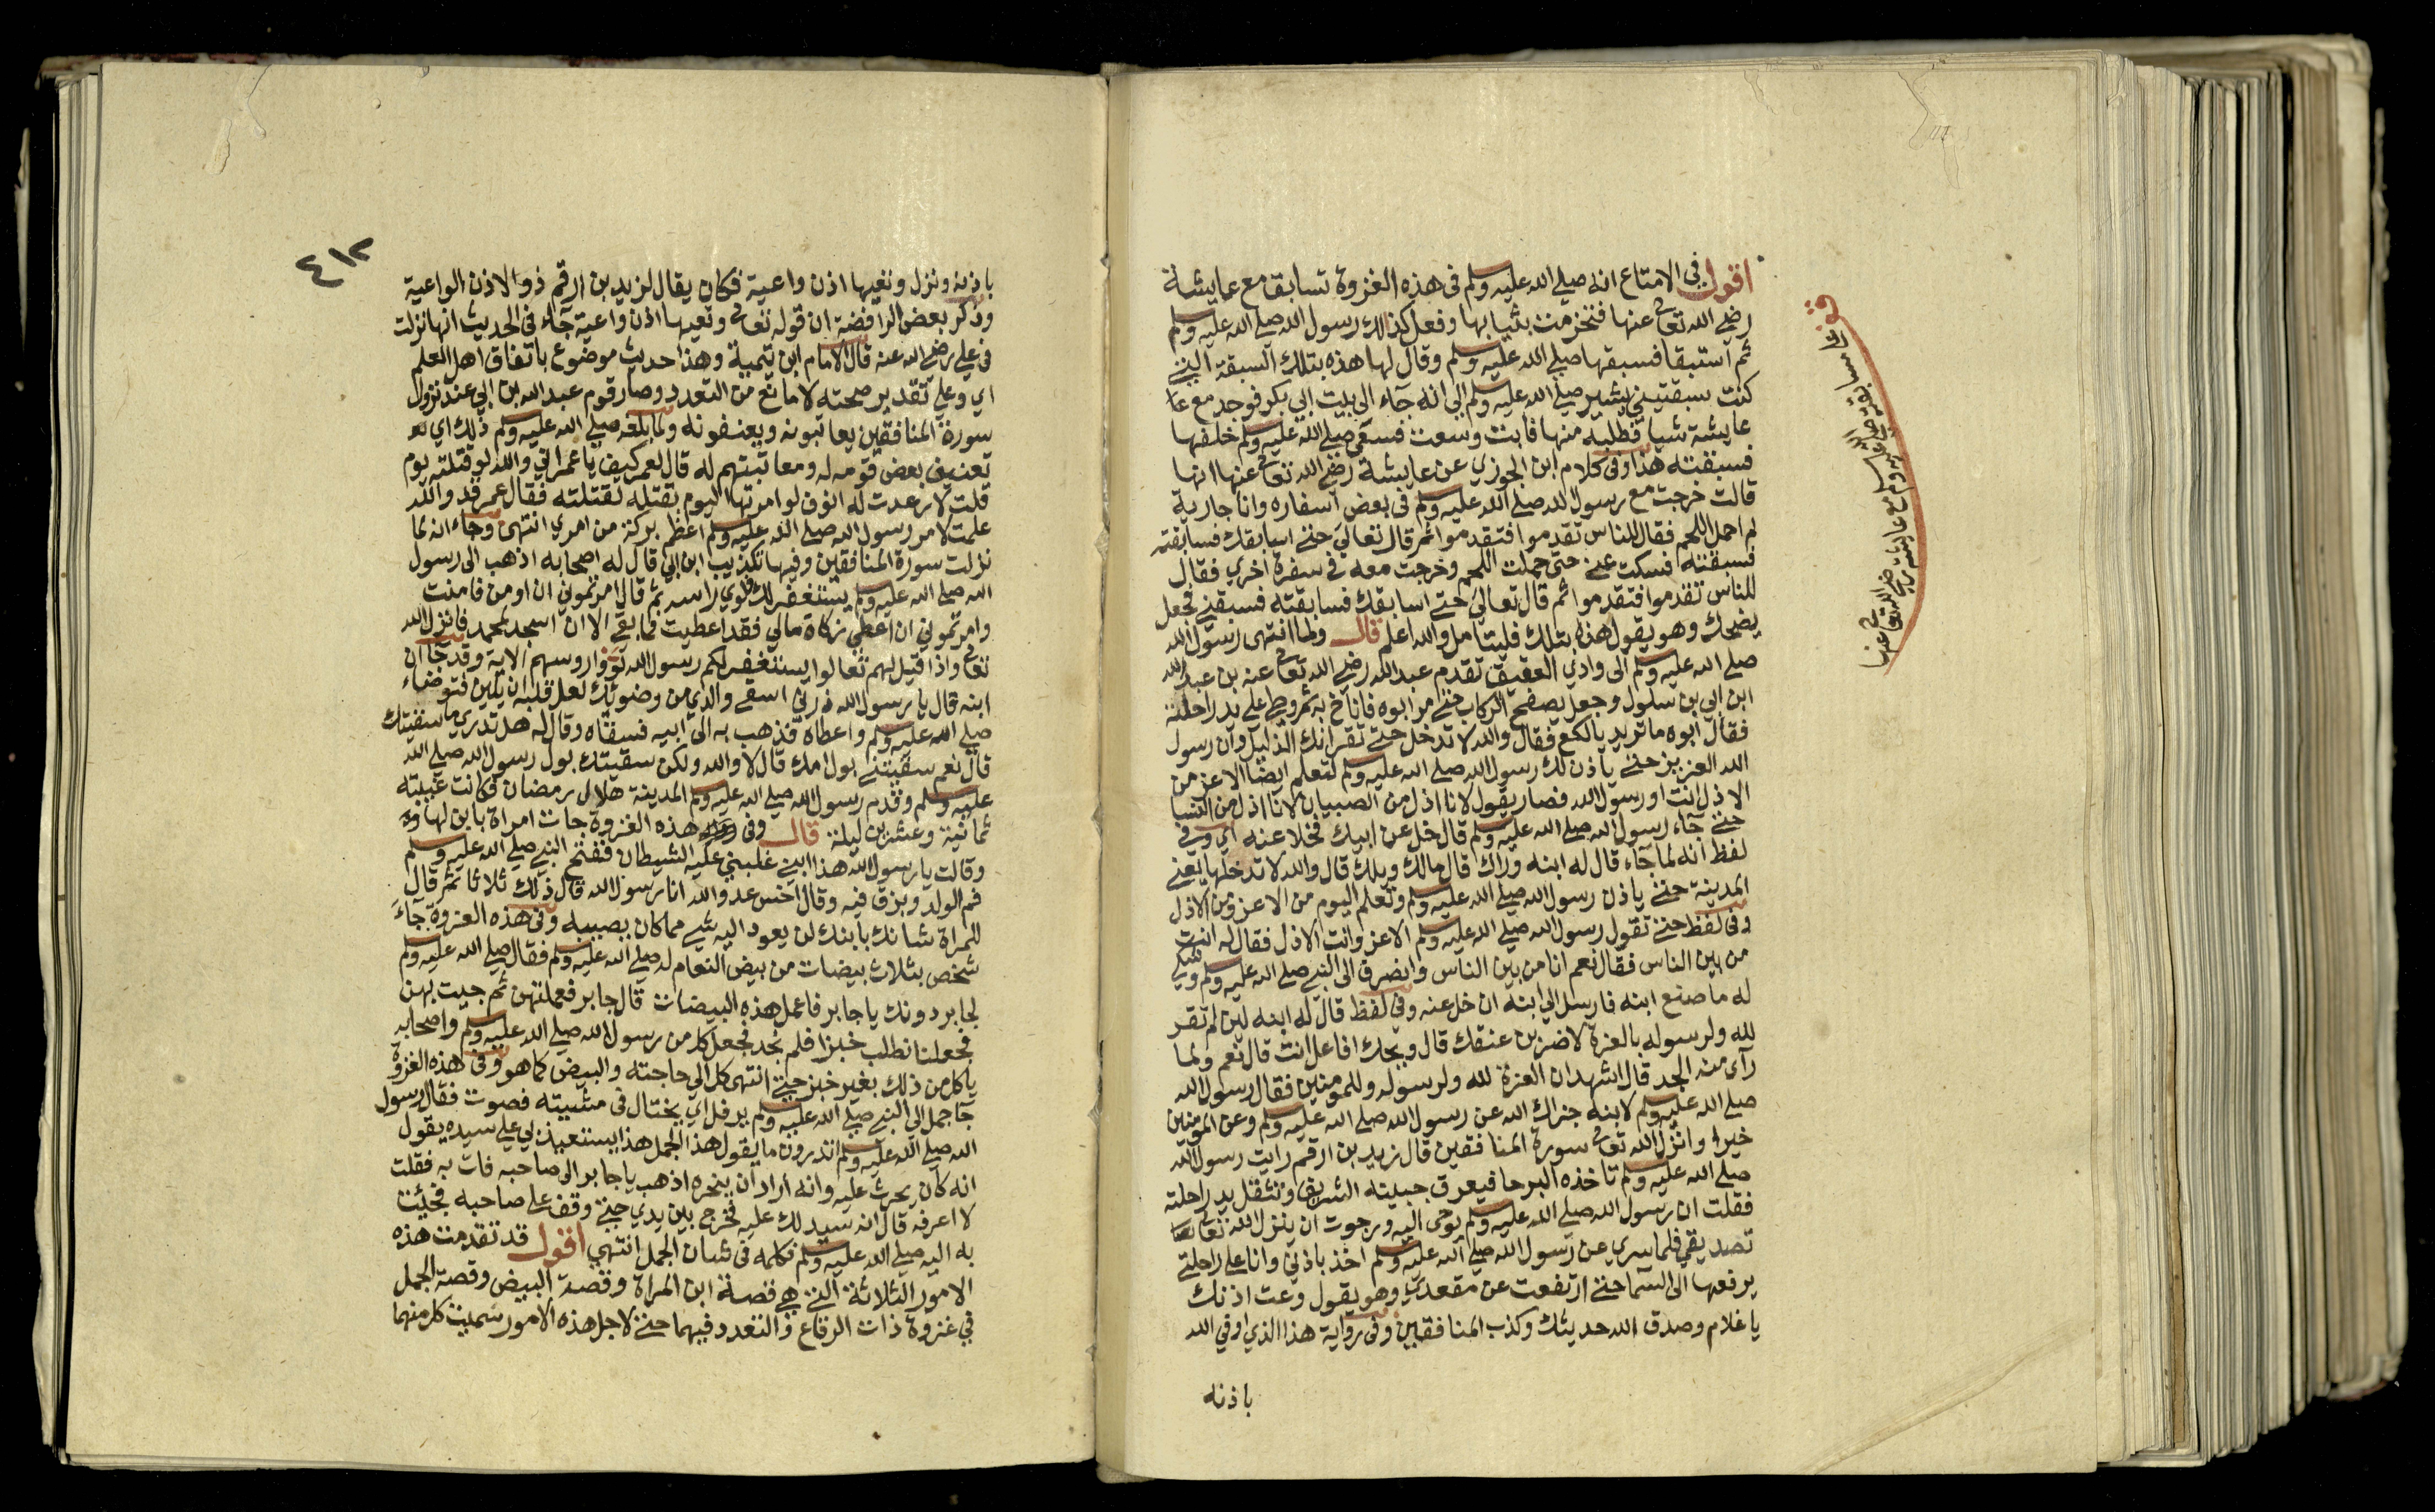 اقول في الامتاع انه صلى الله عليه وسلم في هذه الغزوة تسابق مع عايشة
رضي الله تعالى عنها فتحزمت بثيابها وفعل كذلك رسول الله صلى الله عليه وسلم
ثم استبقا فسبقها صلى الله عليه وسلم وقال لها هذه بتلك السبقة التي
كنت سبقتيني يشير صلى الله عليه وسلم الى انه جآء الى بيت ابي بكر فوجد مع عا
عايشة شيا فطلبه منها فابت وسعت فسعى صلى الله عليه وسلم خلفها
فسبقته هذا وفي كلام ابن الجوزي عن عايشة رضي الله تعالى عنها انها
قالت خرجت مع رسول الله صلى الله عليه وسلم في بعض اسفاره وانا جارية
لم احمل اللحم فقال للناس تقدموا فتقدموا ثم قال تعالي حتى اسابقك فسابقته
فسبقته فسكت عني حتى حملت اللحم وخرجت معه في سفرة اخري فقال
للناس تقدموا فتقدموا ثم قال تعالي حتى اسابقك فسابقته فسبقني فجعل
يضحك وهو يقول هذه بتلك فليتامل والله اعلم قال ولما انتهى رسول الله
صلى الله عليه وسلم الى وادي العقيق تقدم عبد الله رضي الله تعالى عنه بن عبد الله
ابن ابي بن سلول وجعل يصفح الركاب حتى مر ابوه فاناخ به ثم وطي على يد راحلته
فقال ابوه ما تريد يا لكع فقال والله لا تدخل حتى تقر انك الذليل وان رسول
الله العزيز حتى ياذن لك رسول الله صلى الله عليه وسلم لتعلم ايضا الاعز من
الاذل انت او رسول الله فصار يقول لانا اذل من الصبيان لانا اذل من النسا
حتى جآء رسول الله صلى الله عليه وسلم قال خل عن ابيك فخلا عنه اي وفي
لفظ انه لما جآء قال له ابنه وراك قال مالك ويلك قال والله لا تدخلها يعني
المدينة حتى ياذن رسول الله صلى الله عليه وسلم وتعلم اليوم من الاعز ومن الاذل
وفي لفظ حتى تقول رسول الله صلى الله عليه وسلم الاعز وانت الاذل فقال له انت
من بين الناس فقال نعم انا من بين الناس وانصرف الى النبي صلى الله عليه وسلم وشكى
له ما صنع ابنه فارسل الي ابنه ان خل عنه وفي لفظ قال له ابنه لين لم تقر
لله ولرسوله بالعزة لاضربن عنقك قال ويحك افاعل انت قال نعم ولما
رآى منه الجد قال اشهد ان العزة لله ولرسوله وللمومنين فقال رسول الله
صلى الله عليه وسلم لابنه جزاك الله عن رسول الله صلى الله عليه وسلم وعن المومنين
خيرا وانزل الله تعالى سورة المنافقين قال زيد بن ارقم رايت رسول الله
صلى الله عليه وسلم تاخذه البرحا فيعرق جبينه الشريف وتثقل يد راحلته
فقلت ان رسول الله صلى الله عليه وسلم يوحى اليه ورجوت ان ينزل الله تعالى
تصديقي فلما سري عن رسول الله صلى الله عليه وسلم اخذ باذني وانا على راحلتي
يرفعها الى السما حتى ارتفعت عن مقعدي وهو يقول وعت اذنك
يا غلام وصدق الله حديثك وكذب المنافقين وفي رواية هذا الذي اوفى الله
باذنه
مسابقته صلى الله عليه وسلم مع عايشة رضي الله تعالى عنها
٤١٢
باذنه ونزل وتعيها اذن واعية فكان يقال لزيد بن ارقم ذو الاذن الواعية
وذكر بعض الرافضة ان قوله تعالى وتعيها اذن واعية جآء في الحديث انها نزلت
في علي رضي الله عنه قال الامام ابن تيمية وهذا حديث موضوع باتفاق اهل العلم
اي وعلى تقدير صحته لا مانع من التعدد وصار قوم عبد الله بن ابي عند نزول
سورة المنافقين يعاتبونه ويعنفونه ولما بلغه صلى الله عليه وسلم ذلك اي
تعنيف بعض قومه له ومعاتبتهم له قال لعمر كيف يا عمر اني والله لو قتلته يوم
قلت لارعدت له انوف لو امرتها اليوم بقتله لقتلته فقال عمر قد والله
علمت لامر رسول الله صلى الله عليه وسلم اعظم بركة من امري انتهى وجاء انه لما
نزلت سورة المنافقين وفيها تكذيب ابن ابي قال له اصحابه اذهب الى رسول
الله صلى الله عليه وسلم يستغفر لك فلوي راسه ثم قال امرتموني ان اومن فامنت
وامرتموني ان اعطي زكاة مالي فقد اعطيت فما بقي الا ان اسجد لمحمد فانزل الله
تعالى واذا قيل لهم تعالوا يستغفر لكم رسول الله لووا روسهم الاية وقد جآ ان
ابنه قال يا رسول الله ذرني اسقي والدي من وضوئك لعل قلبه ان يلين فتوضاء
صلى الله عليه وسلم واعطاه فذهب به الى ابيه فسقاه وقال له هل تدري ما سقيتك
قال نعم سقيتني بول امك قال لا والله ولكن سقيتك بول رسول الله صلى الله
عليه وسلم وقدم رسول الله صلى الله عليه وسلم المدينة هلال رمضان فكانت غيبته
ثمانية وعشرين ليلة قال وفي هذه الغزوة جات امراة بابن لها
وقالت يا رسول الله هذا ابني غلبني عليه الشيطان ففتح النبي صلى الله عليه وسلم
فم الولد وبزق فيه وقال اخس عدو الله انا رسول الله قال ذلك ثلاثا ثم قال
للمراة شانك بابنك لن يعود اليه شي مما كان يصيبه وفي هذه الغزوة جآء
شخص بثلاث بيضات من بيض النعام له صلى الله عليه وسلم فقال صلى الله عليه وسلم
لجابر دونك يا جابر فاعمل هذه البيضات قال جابر فعملتهن ثم جيت بهن
فجعلنا نطلب خبزا فلم نجد فجعل كل من رسول الله صلى الله عليه وسلم واصحابه
ياكل من ذلك بغير خبز حتى انتهى كل الي حاجته والبيض كما هو وفي هذه الغزوة
جآ جمل الي النبي صلى الله عليه وسلم يرفل اي يختال في مشيته فصوت فقال رسول
الله صلى الله عليه وسلم اتدرون ما يقول هذا الجمل هذا يستعيذ بي على سيده يقول
انه كان يحرث عليه وانه اراد ان ينحره اذهب يا جابر الى صاحبه فات به فقلت
لا اعرفه قال انه سيدلك عليه فخرج بين يدي حتى وقف على صاحبه فجيت
به اليه صلى الله عليه وسلم فكلمه في شان الجمل انتهي اقول قد تقدمت هذه
الامور الثلاثة التي هي قصة ابن المراة وقصة البيض وقصة الجمل
في غزوة ذات الرقاع والتعدد فيهما حتى لاجل هذه الامور سميت كل منهما